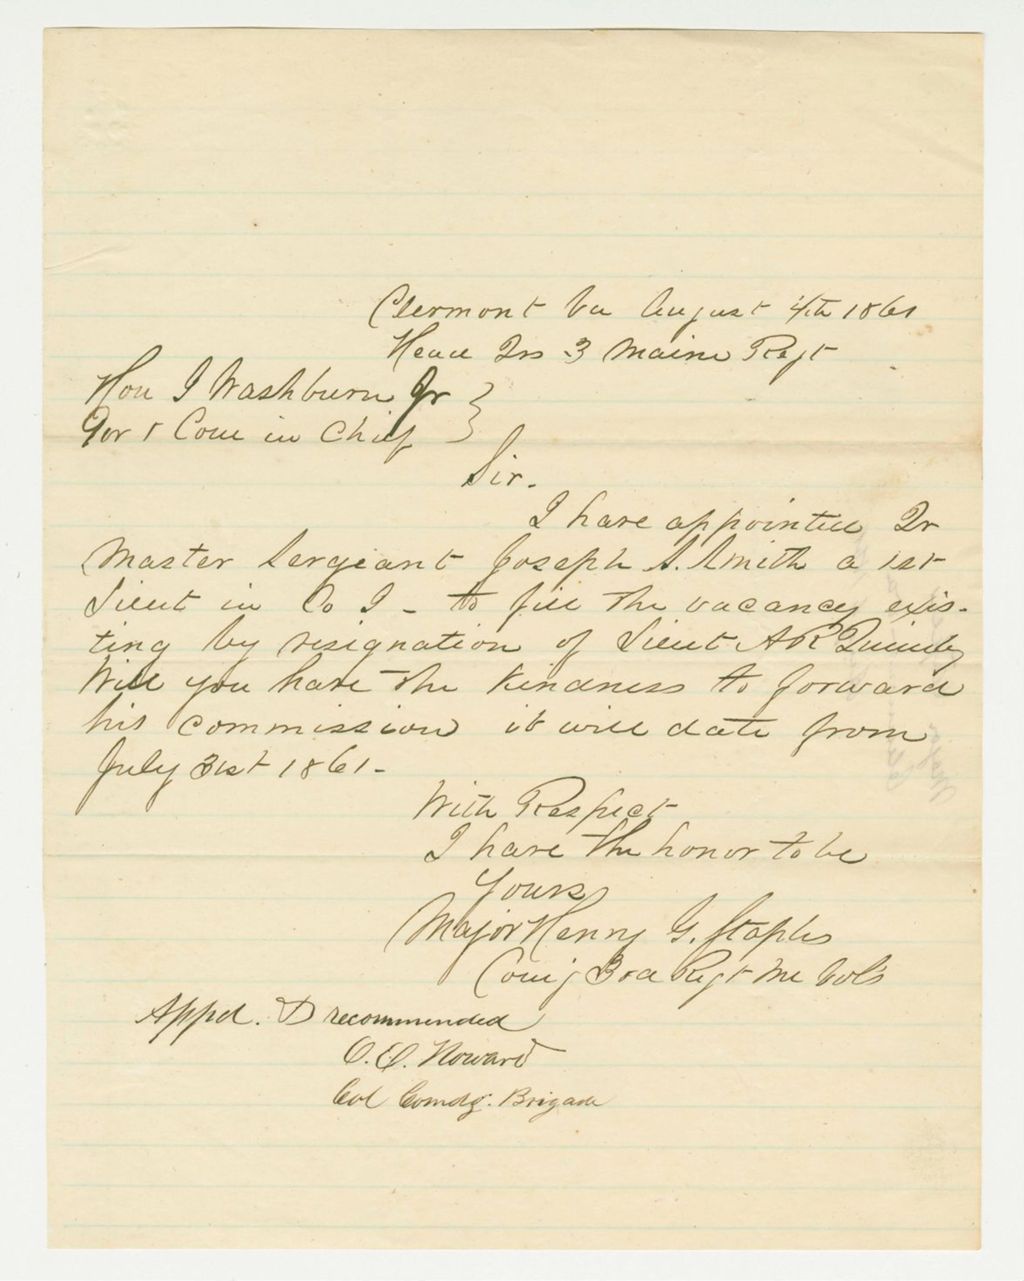 Clermont Va August 4th 1861
Head Qrs 3 Maine Regt
Hon I Washburn Jr
Gov & Com in Chief
Sir.
I have appointed Qr
Master Sergeant Joseph S. Smith a 1st
Lieut in Co I - to fill the vacancy exis-
ting by resignation of Lieut A R Quimby
Will you have the kindness to forward
his commission it will date from
July 31st 1861-
With Respect
I have the honor to be
Yours
Major Henry G. Staples
Comg 3rd Regt Me Vols
Appd. & recommended
O. O. Howard
Col Comdg. Brigade